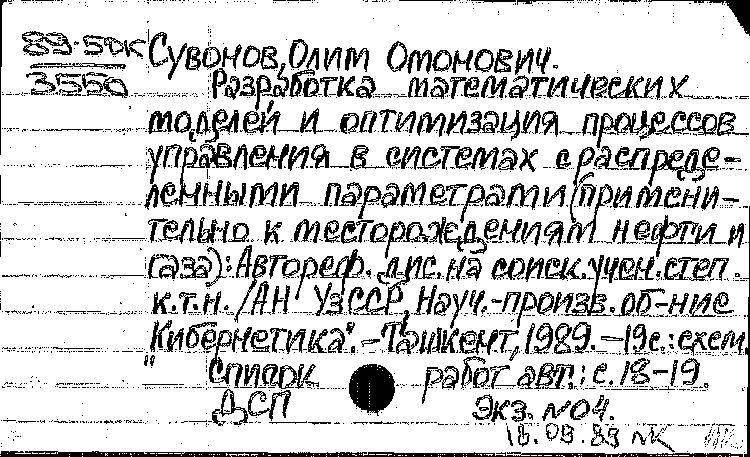 89-5ДК Сувонов, Олим Омонович.
3550 Разработка математических
моделей и оптимизация процессов
управления в системах с распреде-
ленными параметрами (примени-
тельно к месторождениям нефти и
газа): Автореф. дис. на соиск. учен. степ.
к.т.н. /АН УзССР, Науч.-произв. об-ние
"Кибернетика".-Ташкент, 1989.-19с.: схем.
Список работ авт.: с.18-19.
ДСП Экз. №04.
18.09.89